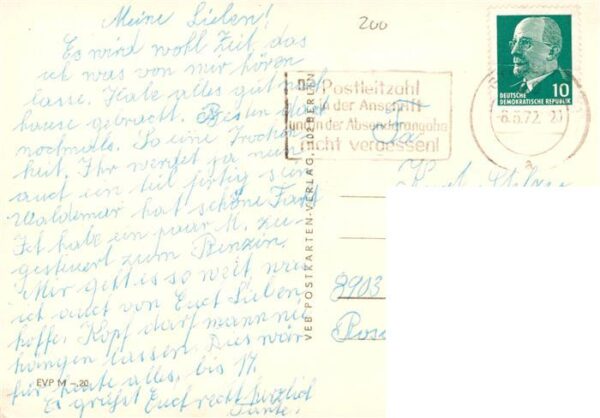 Meine Lieben!
Es wird wohl Zeit das
ich was von mir hören
lasse. Habe alles gut nach
hause gebracht.
nochmals. So eine Trocken
heit. Ihr werdet ja nun
auch ein teil fertig sein
Waldemar hat schöne Fahrt
Ich habe ein paar M. zu-
gesteuert zum Benzin.
Mir geht es so weit, was
ich auch von Euch Lieben
hoffe. Kopf darf mann nie
hängen lassen. Dies wär
für heute alles, bis 17.
Es grüßt Euch recht herzlich
Tante.
EVP M –.20
VEB POSTKARTEN-VERLAG, 102 BERLIN
200
Die Postleitzahl
in der Anschrift
und in der Absenderangabe
nicht vergessen!
DEUTSCHE
DEMOKRATISCHE REPUBLIK
10
8.6.72
a
8903